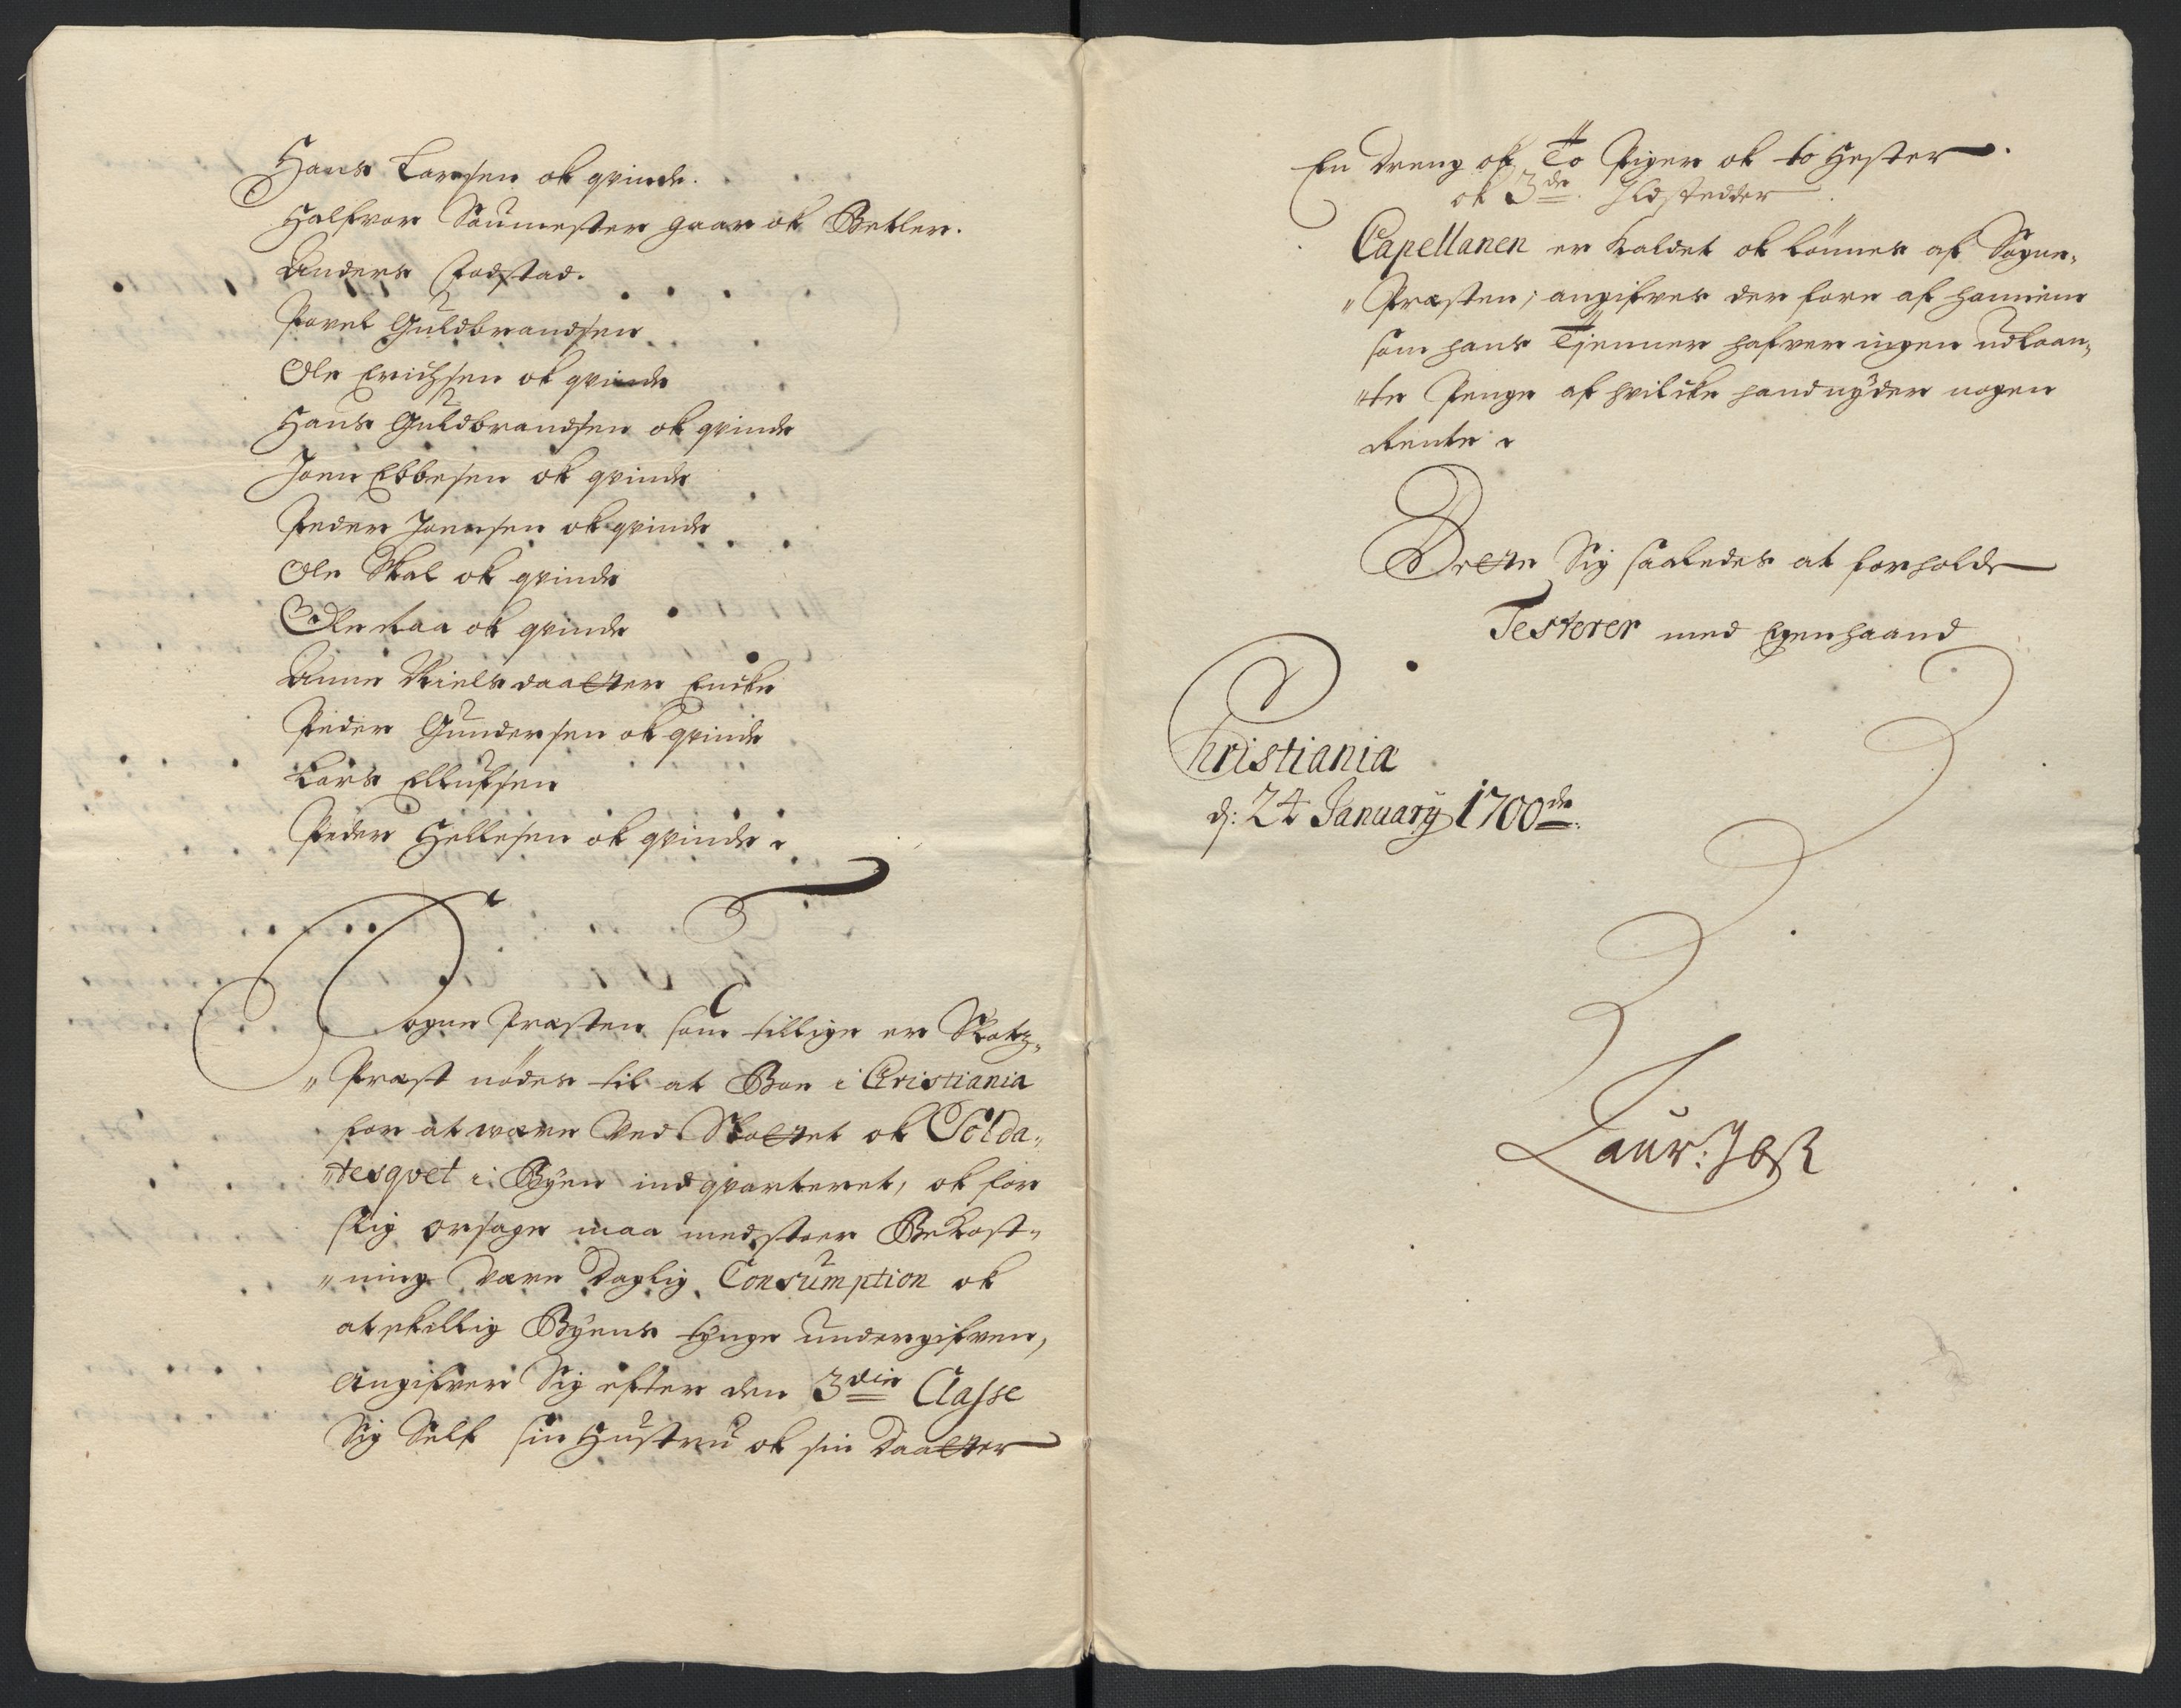 Hans Larsen ok qvinde.
Halfvor Soumester gaar ok Betler.
Anders Rodstad.
Povel Guldbrandsen
Ole Erichsen ok qvinde
Hans Guldbrandsen ok qvinde
Joen Ebbesen ok qvinde
Peder Joensen ok qvinde
Ole Skal ok qvinde
Ole Raa ok qvinde
Anne Nielsdaatter Encke
Peder Gundersen ok qvinde
Lars Ellufsen
Peder Hellesen ok qvinde
Sogne Præsten som tillige er Slotz-
"Præst nödes til at Boe i Christiania
for at være Ved Slottet ok Solda-
"tesqvet i Byen indqvarteret, ok for
slig orsage maa med stoer Bekost-
"ning være daglig Consumption ok
atskellig Byens tynge undergifven,
Angifver Sig efter den 3die Classe
Sig Self sin Hustru ok sin Daatter
En dreng ok To Piger ok to Hester.
ok 3de Ildstedder
Capellanen er kaldet ok lönnes af Sogne-
"Præsten; angifves der fore af hannem
som hans Tjenner hafver ingen udlaan-
"te Penge af hvilcke hand nyder nogen
Rente
Dette Sig saaledes at forholde
Testerer med Egenhaand
Christiania
d: 24 January 1700de.
Laur: Jbß